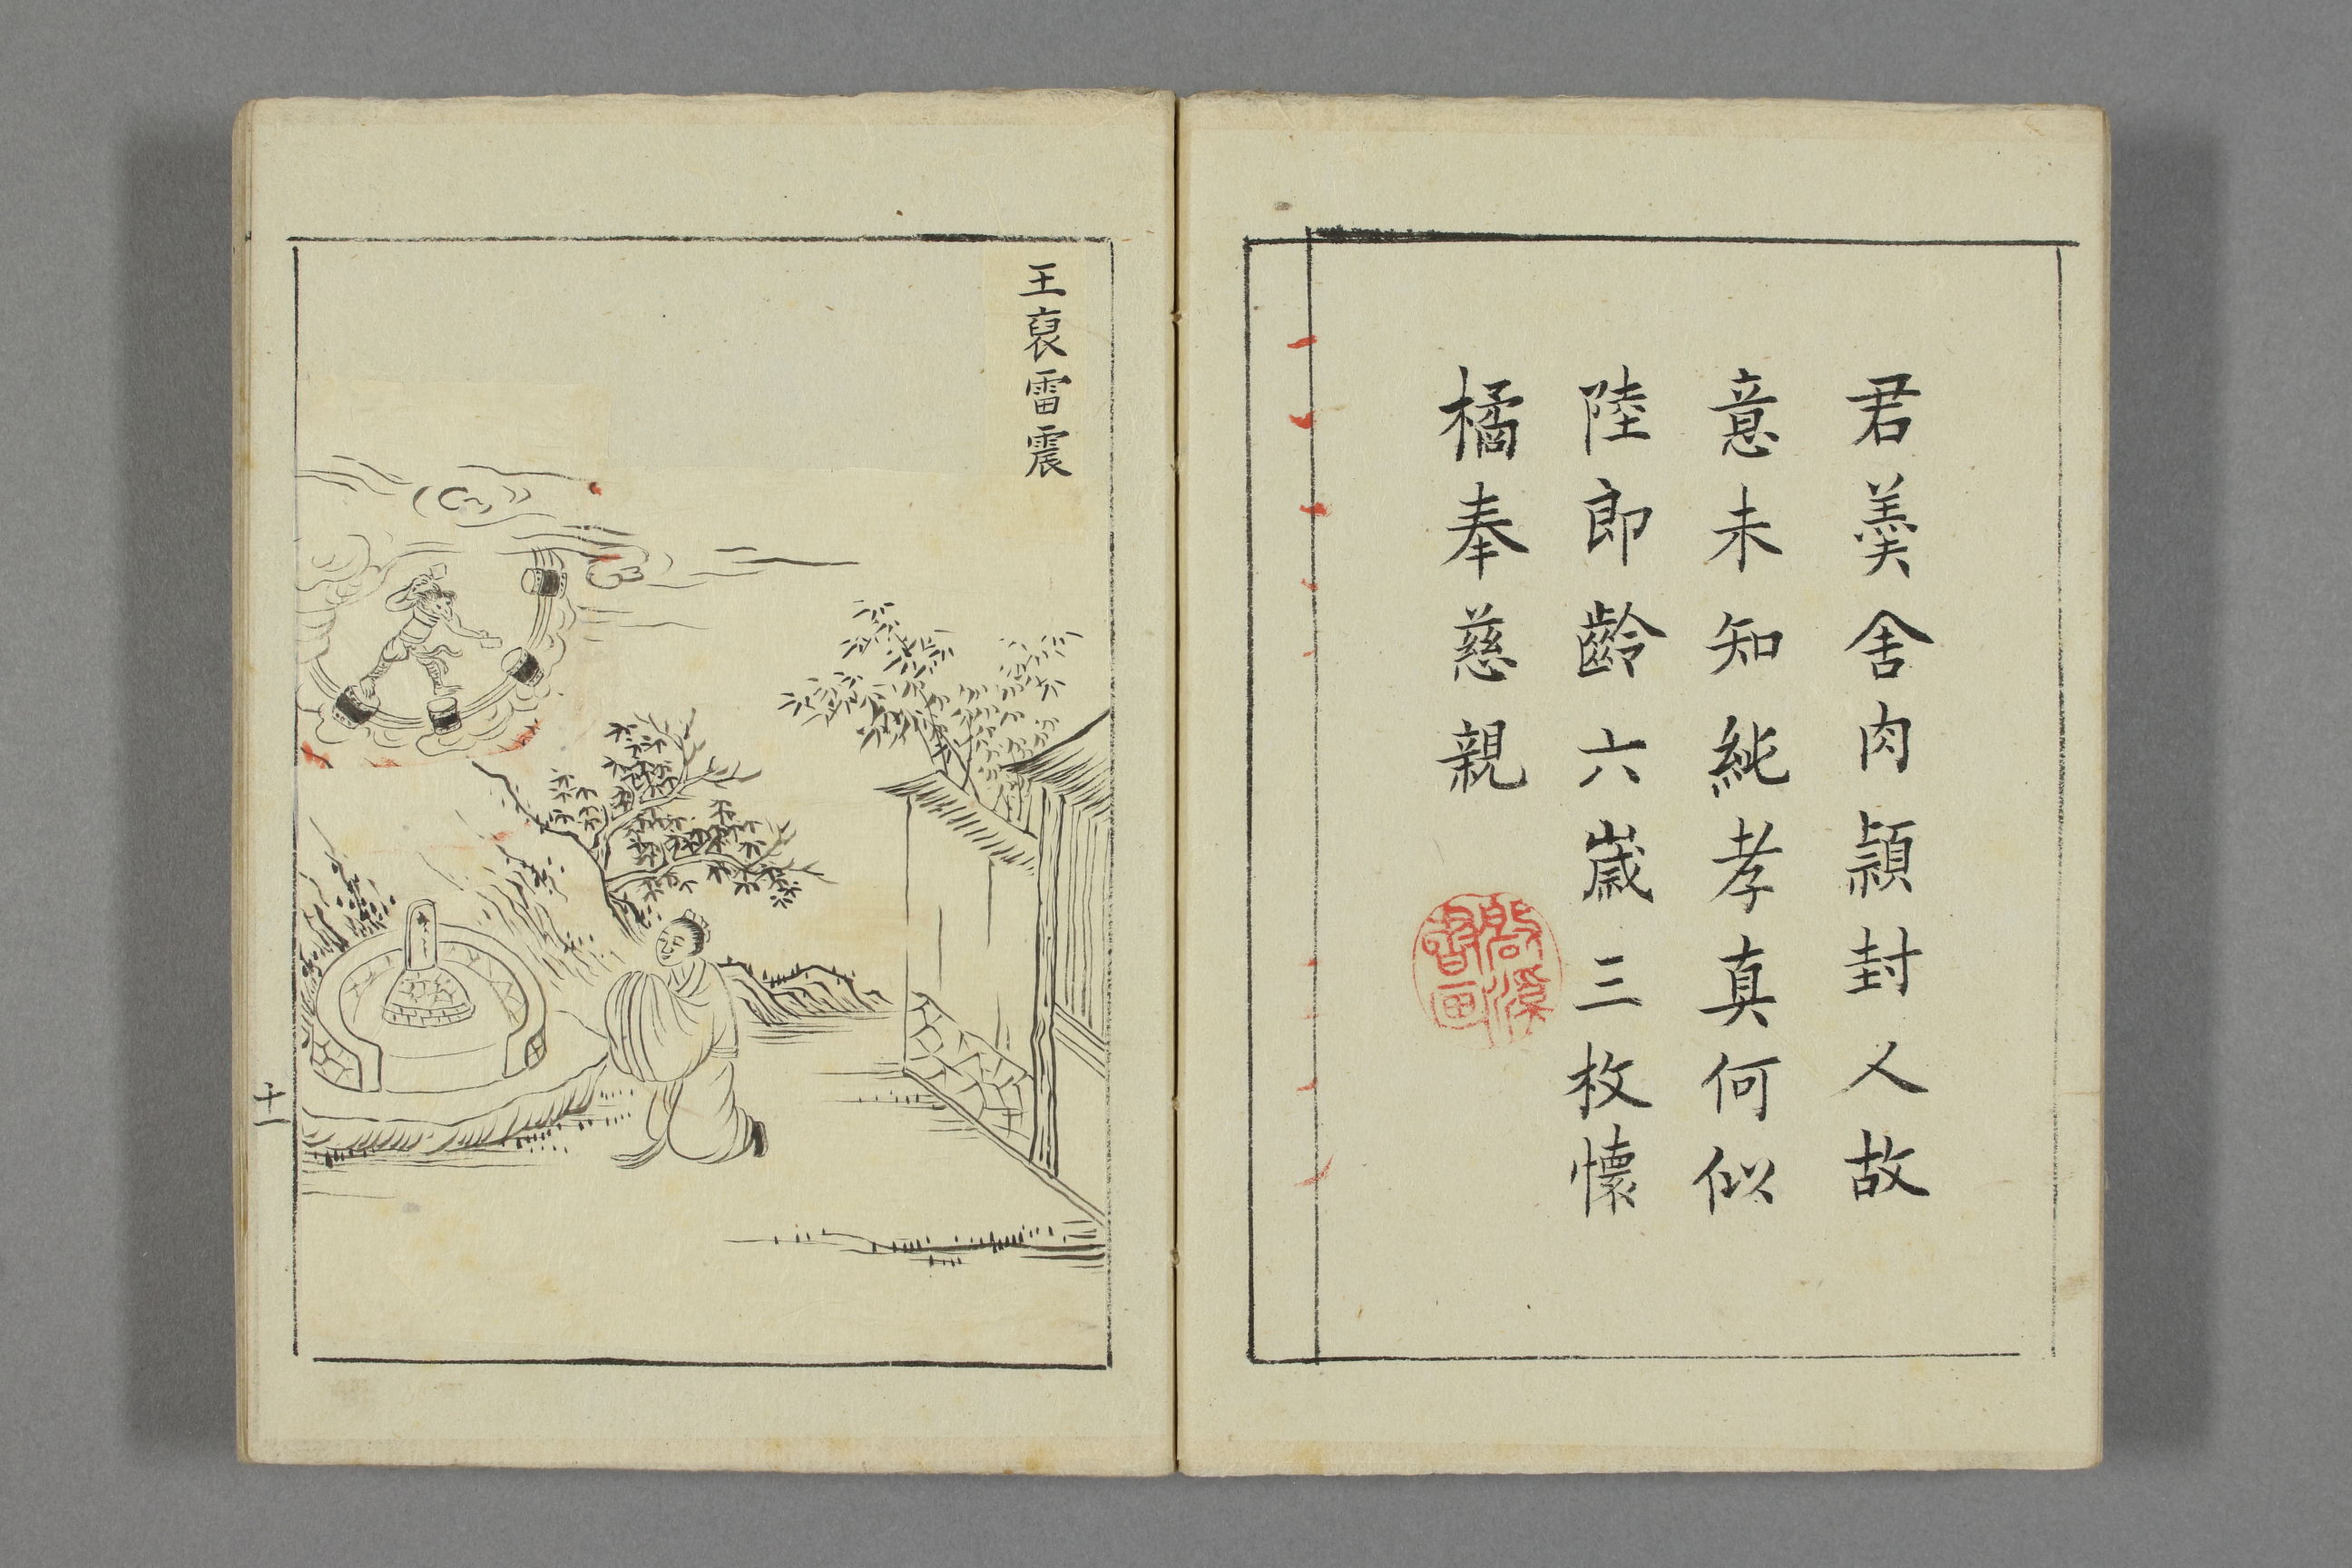 君羹舎肉頴封人故
意未知純孝真何似
陸郎齡六嵗三枚懷
橘奉慈親
王裒雷震
十一